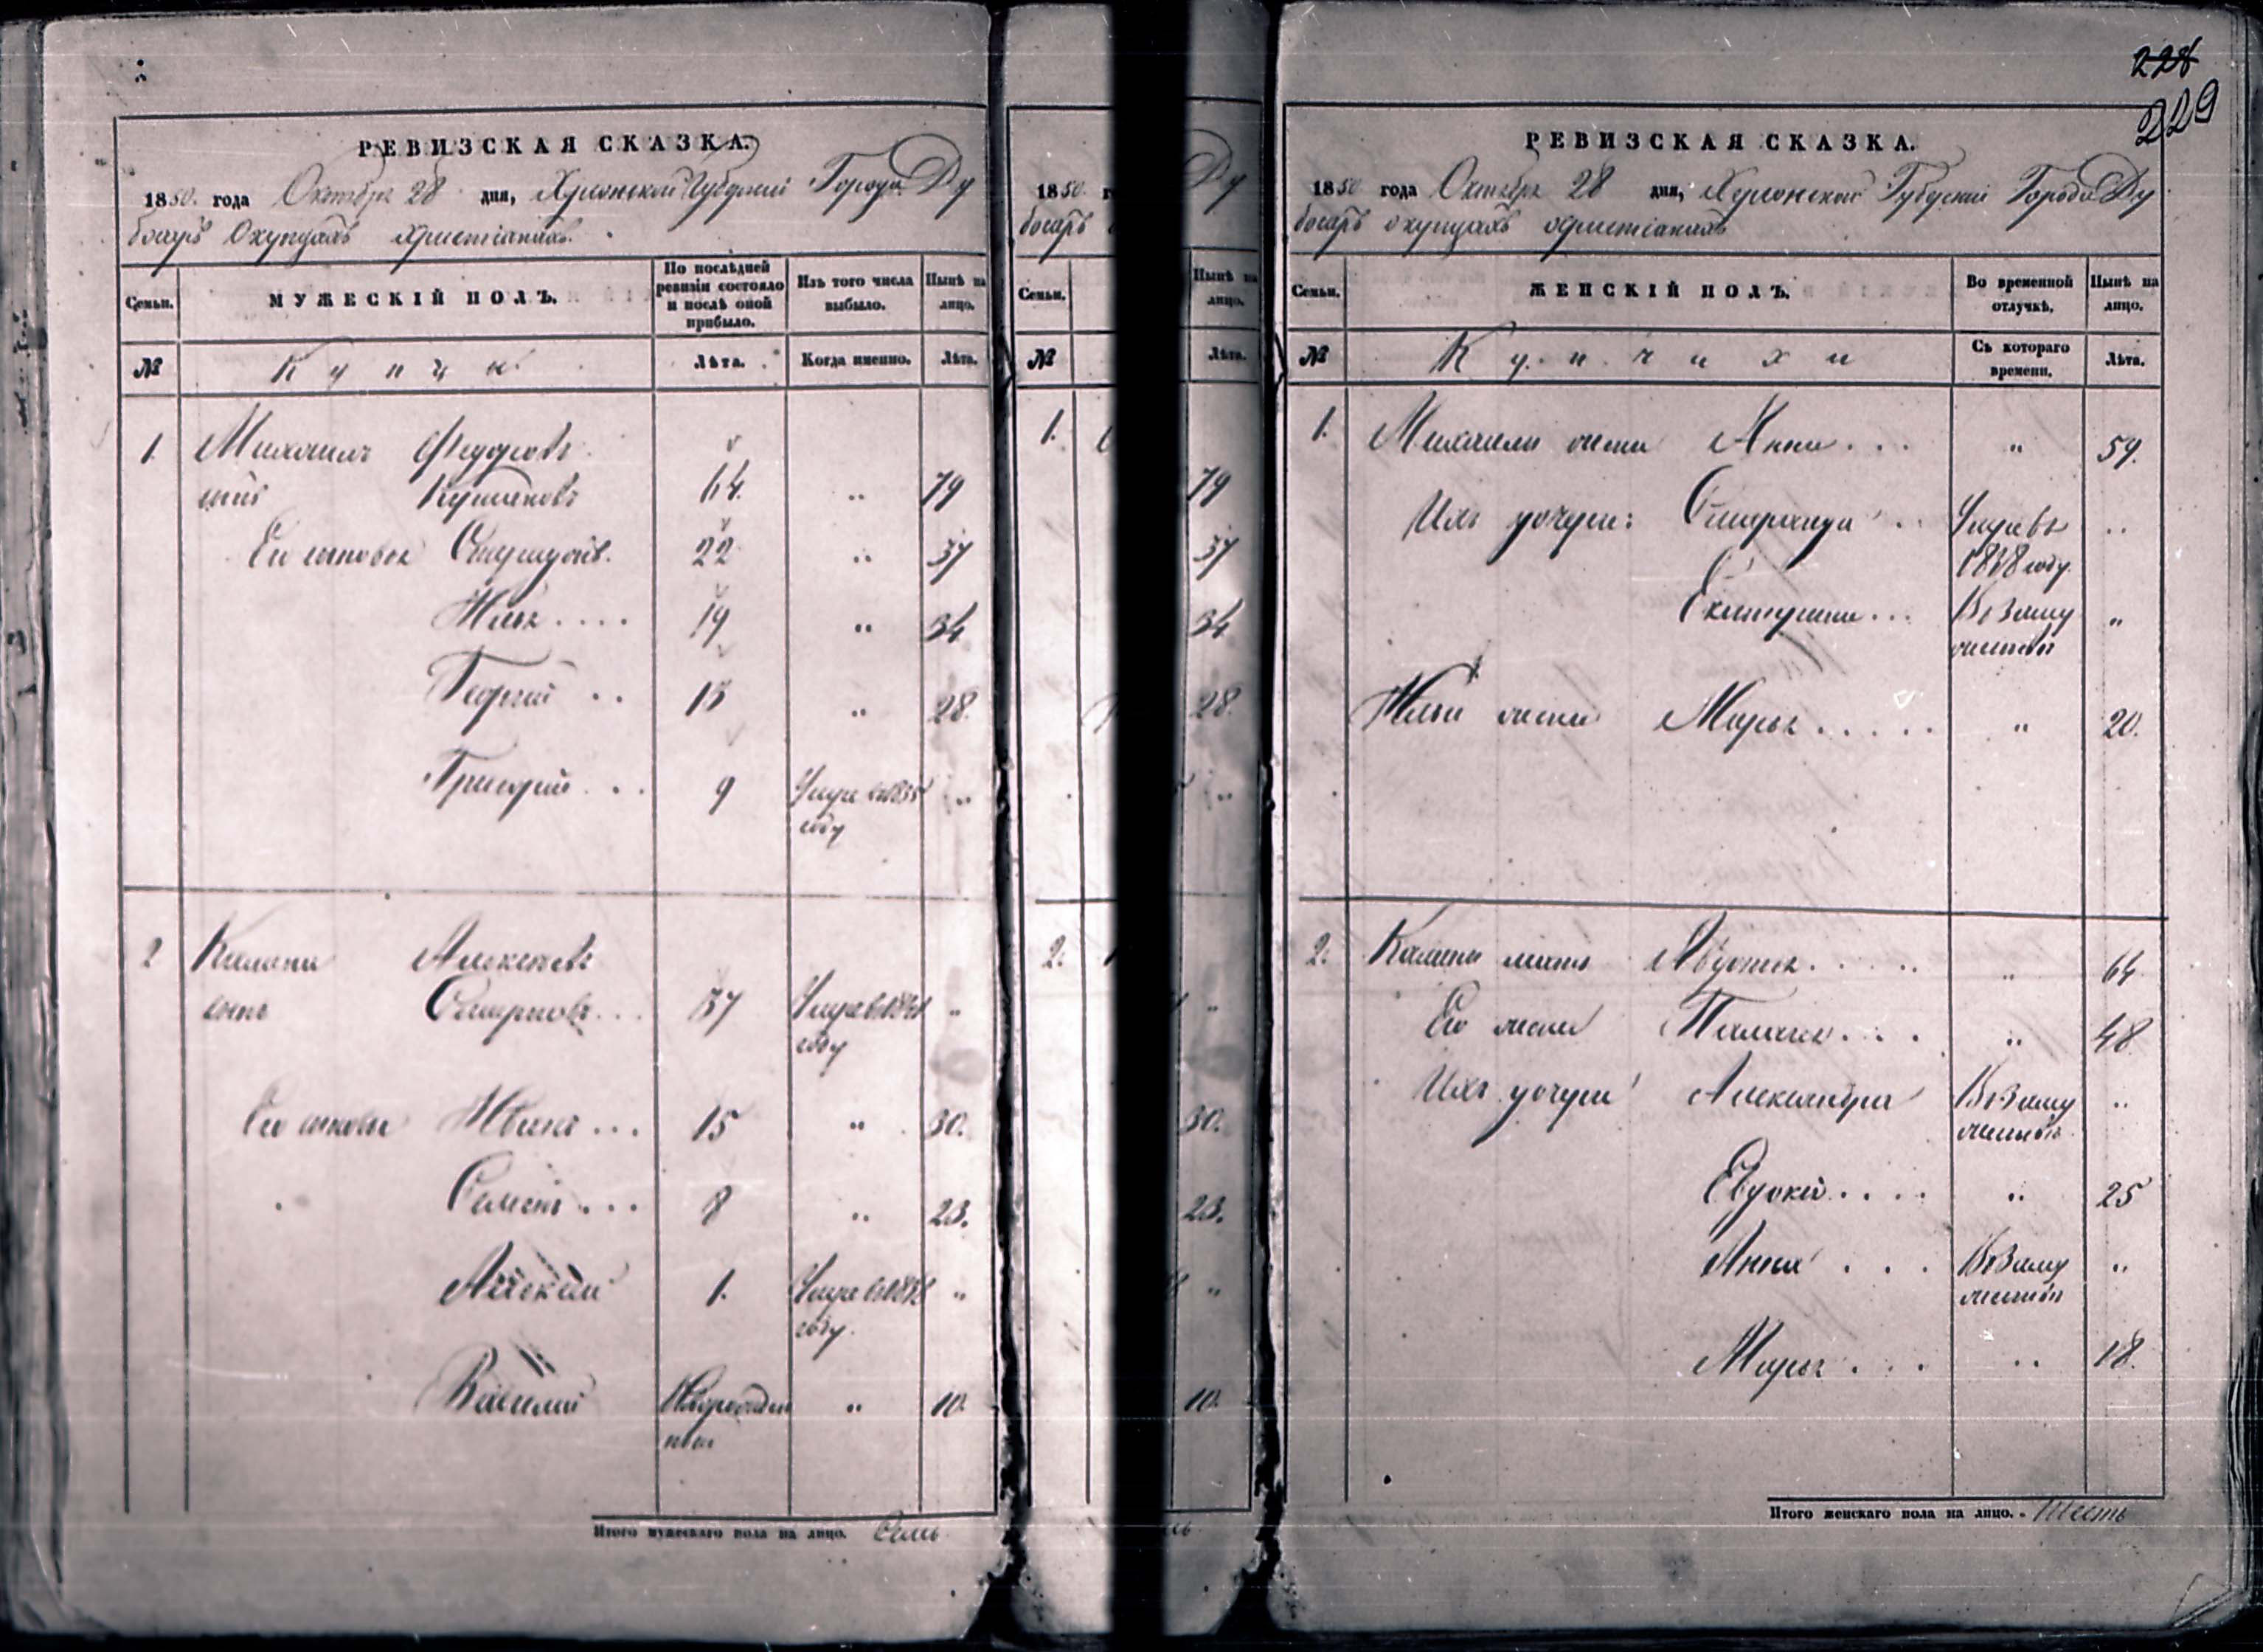 РЕВИЗСКАЯ СКАЗКА.
1850. года Октября 28 дня, Херсонской Губернии Города Ду
босаръ о купцахъ христіанахъ.
Семьи.
МУЖЕСКІЙ ПОЛЪ.
По послѣдней ревизіи состояло и послѣ оной прибыло.
Изъ того числа выбыло.
Нынѣ на лицо.
№
Купцы
Лѣта.
Когда именно.
Лѣта.
1. Михаилъ Федоровъ
сынъ 64. " 79
Его сыновья 22 " 37
Илья .... 19 " 34
Георгий .. 13 " 28.
Григорий ... 9 году "
2 Калина Алексеевъ
сынъ Смирновъ... году "
Его сыновья Иванъ ... 15 " 30.
Семенъ ... 8 " 23.
Алексей 1. году. "
Василий Новорожден " 10.
ный
Итого мужескаго пола на лицо. Семь
1850. г
босаръ
Семьи.
№
1.
2.
Ду
Нынѣ на лицо.
Лѣта.
79
37
34
28.
"
"
30.
23.
"
10.
228
229
РЕВИЗСКАЯ СКАЗКА.
1850 года Октября 28 дня, Херсонской Губернии Города Ду
босаръ о купцахъ христіанахъ
Семьи.
ЖЕНСКІЙ ПОЛЪ.
Во временной отлучкѣ.
Нынѣ на лицо.
№
Купчихи
Съ котораго времени.
Лѣта.
1. Михаила жена Анна ... " 59.
Ихъ дочери: ..
году.
Екатерина ... В заму "
жестве
Ильи жена Марья ..... " 20.
2. Калины мать Авдотья ..... " 64
Его жена Пелагея .... " 48
Ихъ дочери Александра В заму "
жестве
Евдокия .... " 25
Анна ... В заму "
жестве
Марья ... " 18.
Итого женскаго пола на лицо. Шесть